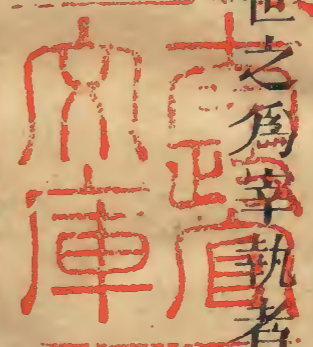 世之爲宰執者
文庫